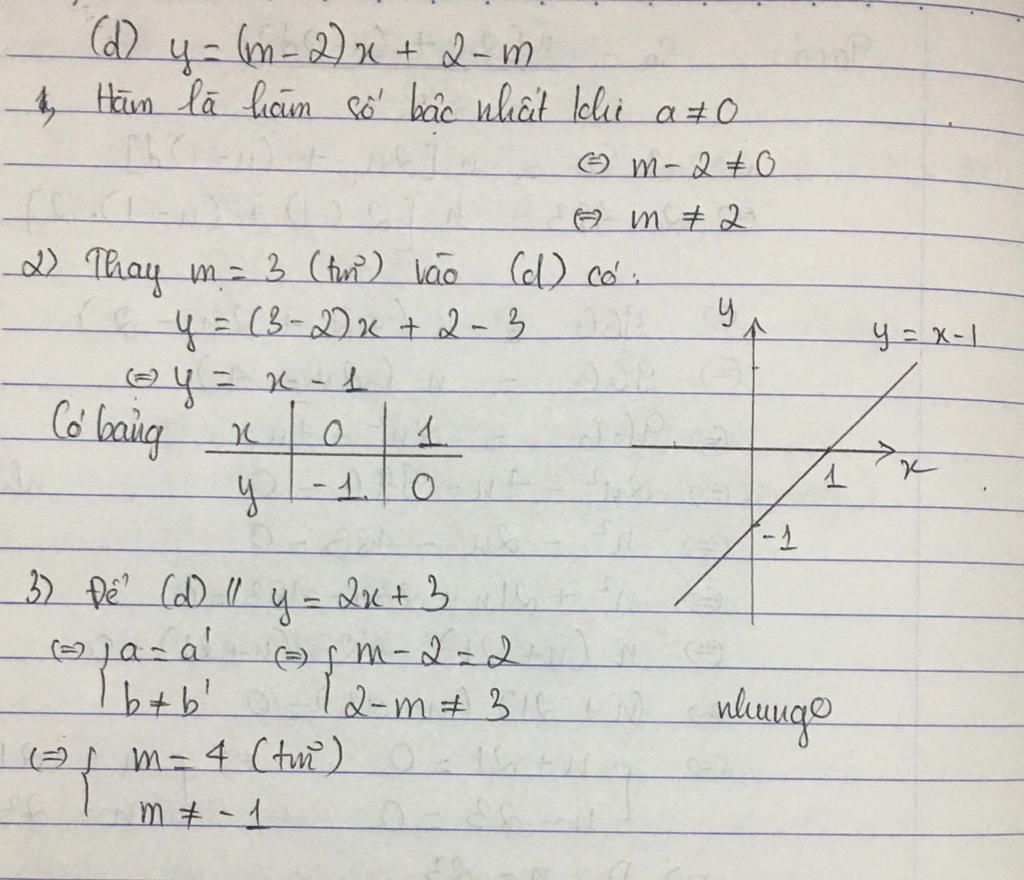 (d) y = (m - 2)x + 2 - m
1, Hàm là hàm số bậc nhất khi a ≠ 0
⇔ m - 2 ≠ 0
⇔ m ≠ 2
2) Thay m = 3 (tm²) vào (d) có:
y = (3 - 2)x + 2 - 3
⇔ y = x - 1
Có bảng x | 0 | 1
y | -1 | 0
y
y = x - 1
x
1
-1
3) Để (d) // y = 2x + 3
⇔ { a = a' ⇔ { m - 2 = 2
b ≠ b' 2 - m ≠ 3
nhung
⇔ { m = 4 (tm²)
m ≠ -1